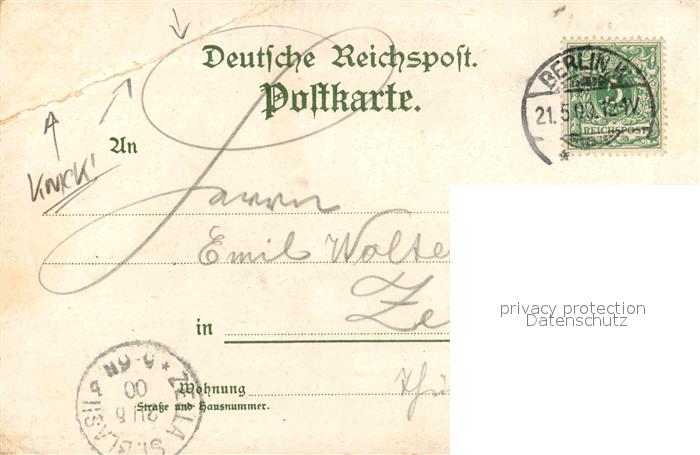 Deutsche Reichspost.
Postkarte.
BERLIN W.
21.5.00.
5
REICHSPOST
An
KNICK!
Herrn
Emil Wolte
Ze
privacy protection
Datenschutz
in
Wohnung
Thü
Straße und Hausnummer.
ZELLA ST. BLASII
00